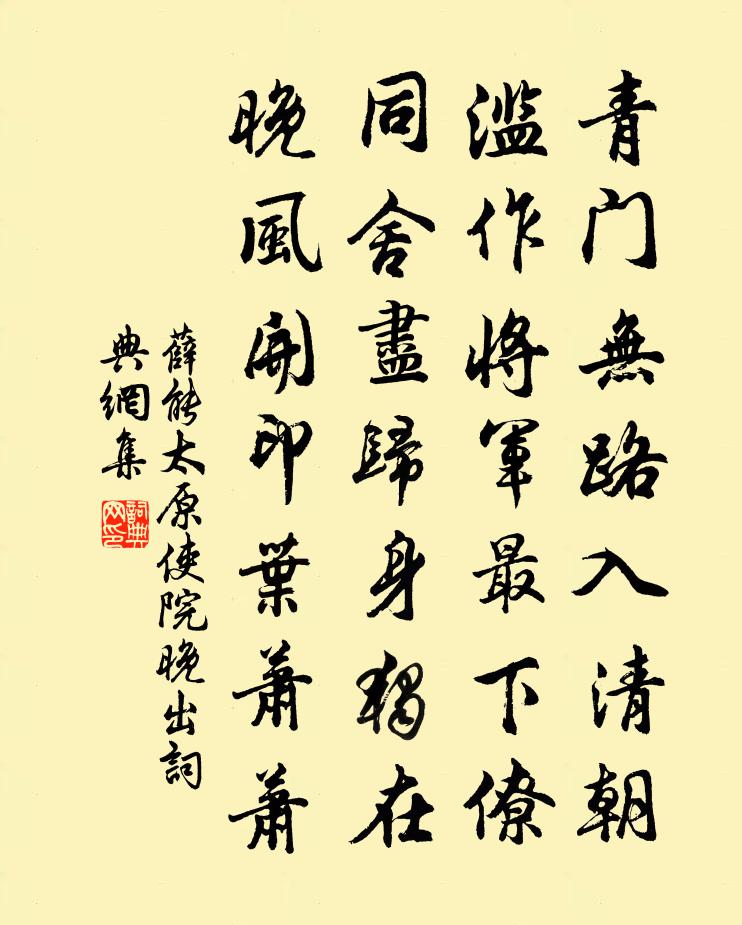 青门無路入清朝
滥作将軍最下僚
同舍盡歸身獨在
晚風開印葉蕭蕭
薛能太原使院晚出詞
典網集
詞典网印